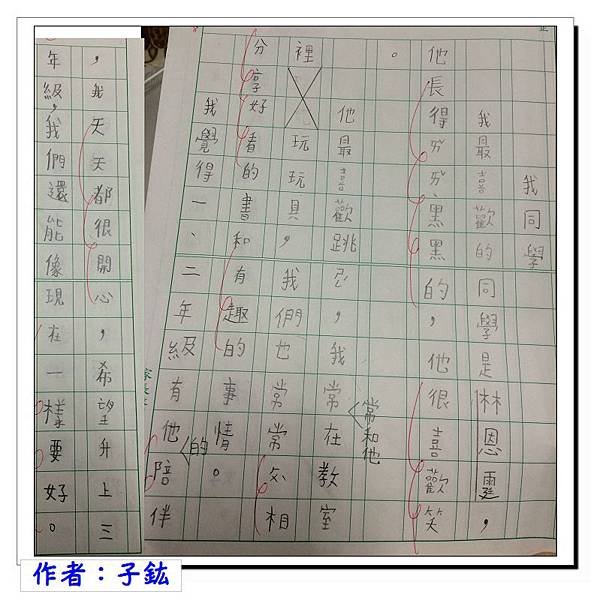 我同學
我最喜歡的同學是林恩霆，
他長得ㄞㄞ黑黑的，他很喜歡笑
。
他最喜歡跳，我常在教室
常和他
裡玩玩具，我們也常常互相
分享好看的書和有趣的事情。
我覺得一、二年級有他陪伴
的
，我天天都很開心，希望升上三
年級，我們還能像現在一樣要好。
作者：子鈜